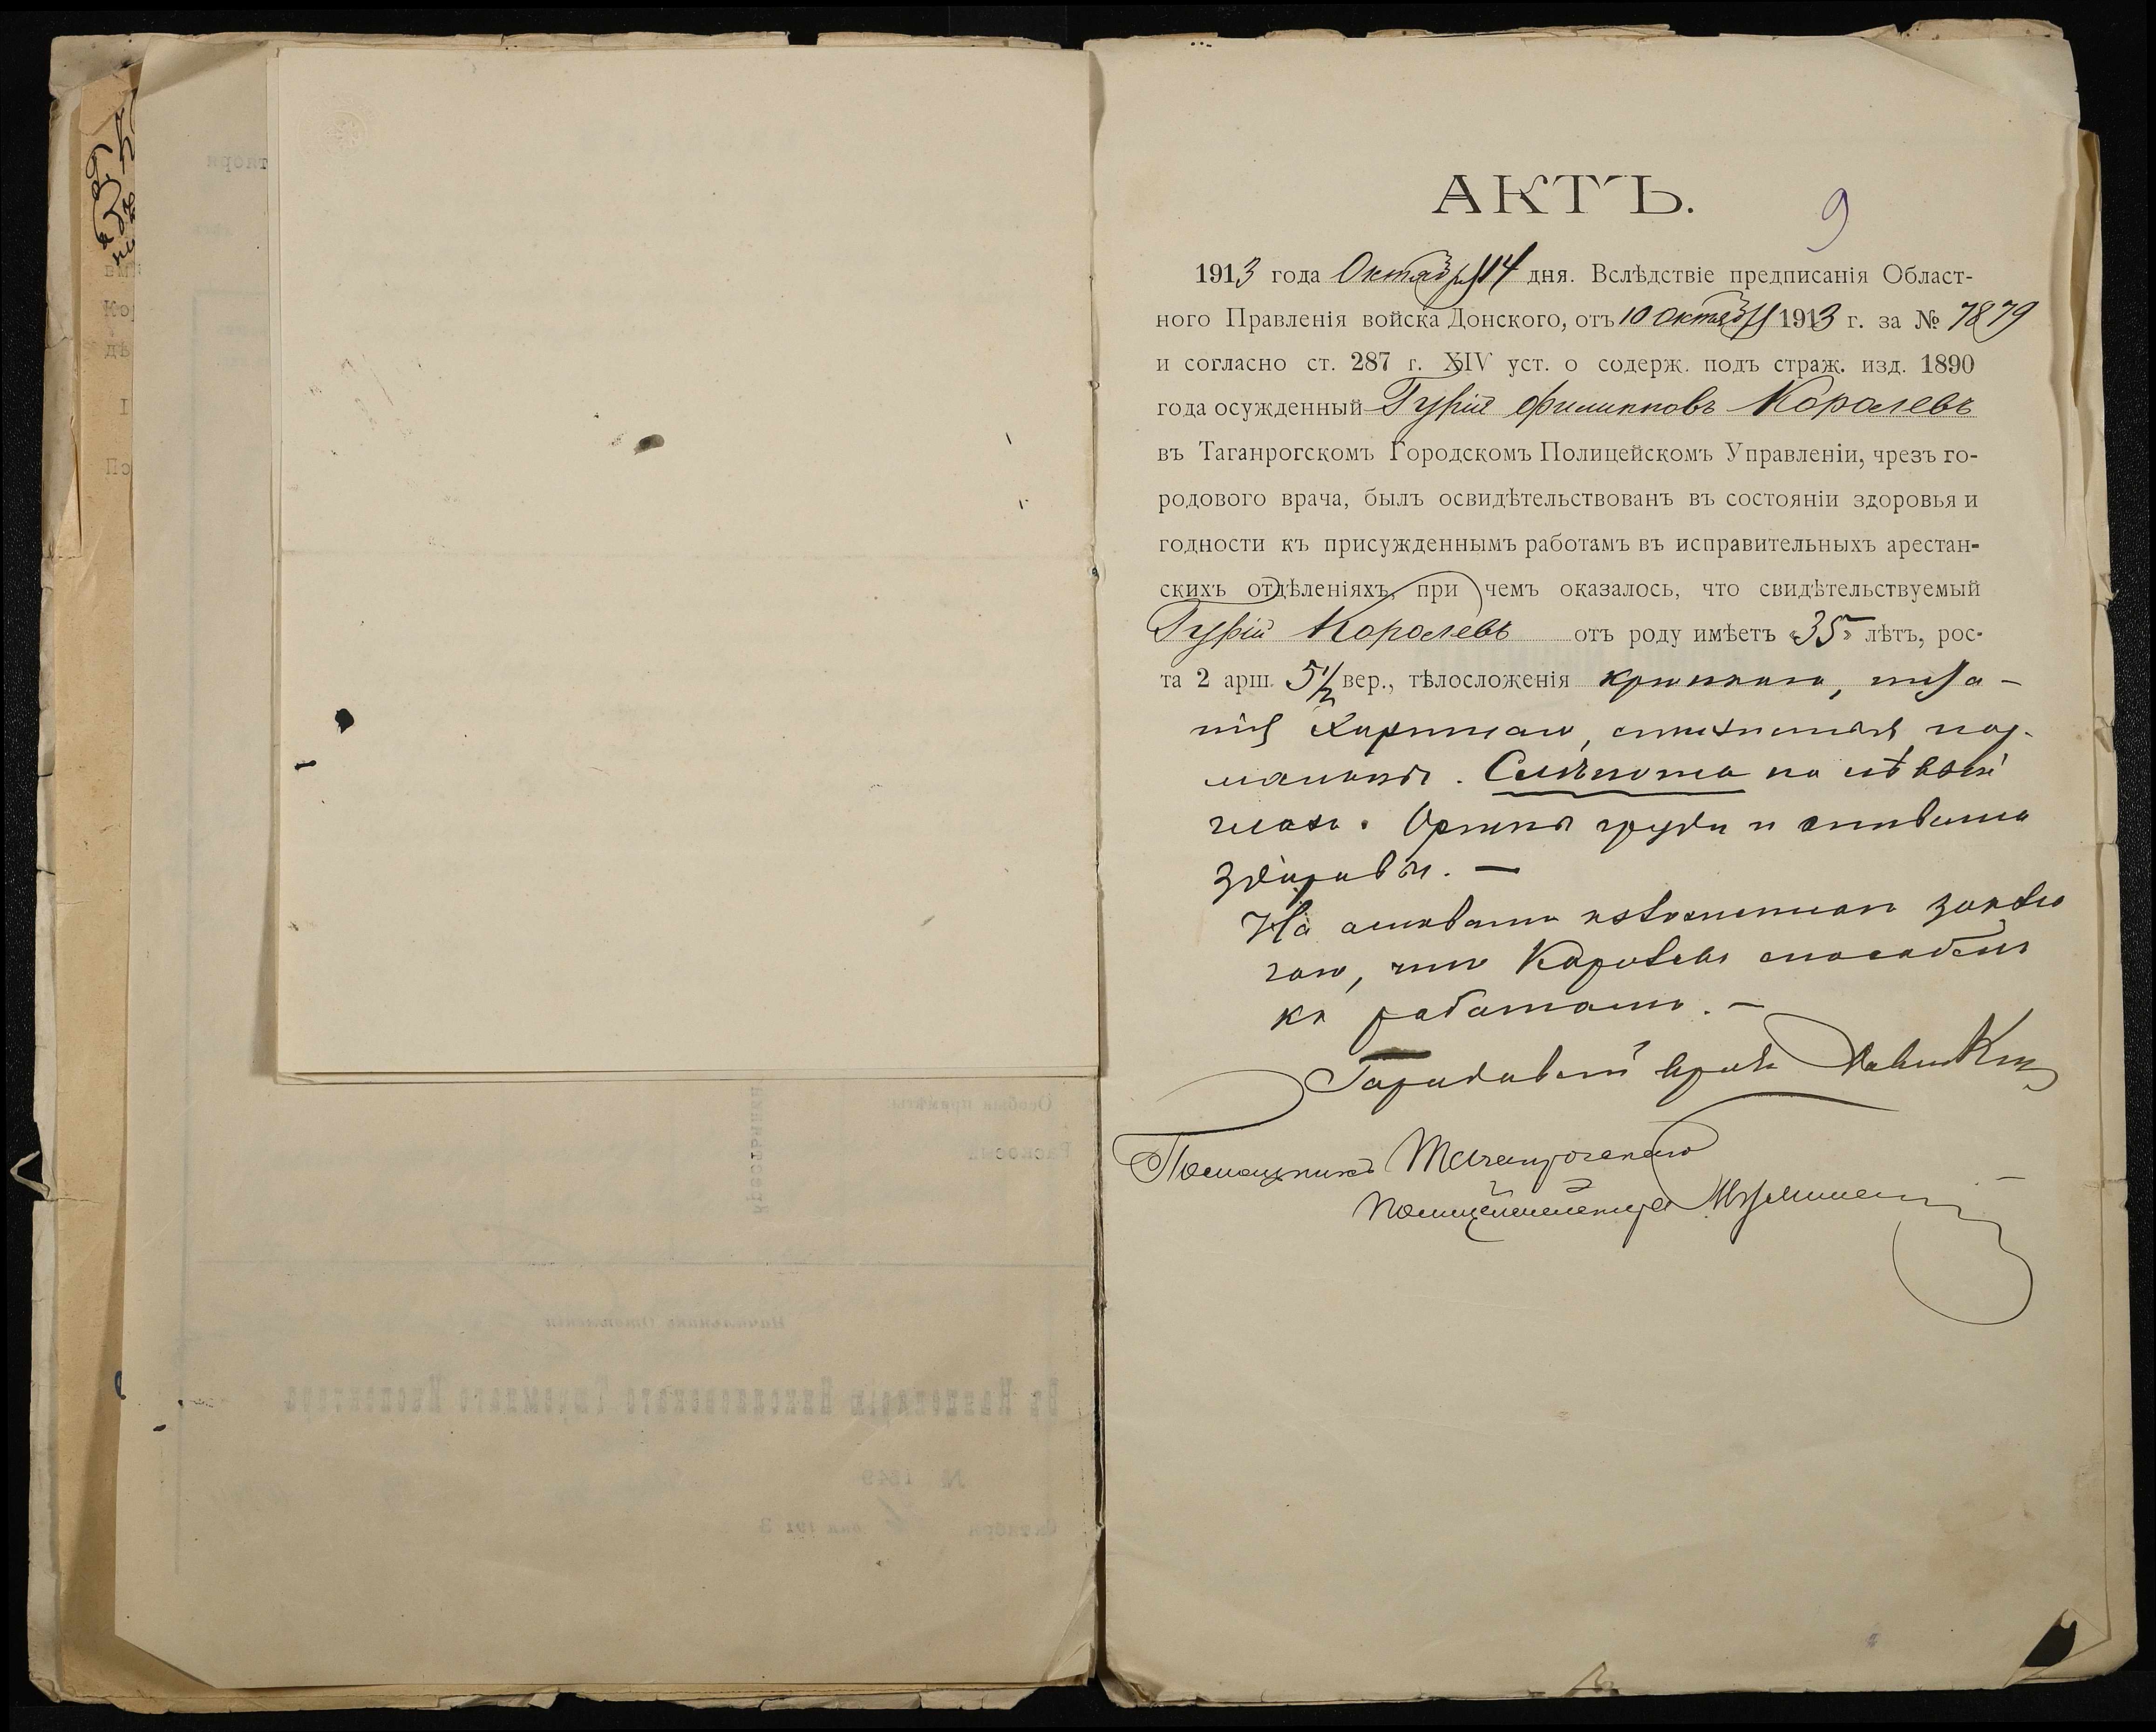 АКТЪ.
9
1913 года Октября 14 дня. Вслѣдствіе предписанія Област-
ного Правленія войска Донского, отъ 10 октября 1913 г. за № 7879
и согласно ст. 287 г. XIV уст. о содерж. подъ страж. изд. 1890
года осужденный Гурій Филипповъ Королевъ
въ Таганрогскомъ Городскомъ Полицейскомъ Управленіи, чрезъ го-
родового врача, былъ освидѣтельствованъ въ состояніи здоровья и
годности къ присужденнымъ работамъ въ исправительныхъ арестан-
скихъ отдѣленіяхъ, при чемъ оказалось, что свидѣтельствуемый
Гурій Королевъ отъ роду имѣетъ «35» лѣтъ, рос-
та 2 арш. 5 1/2 вер., тѣлосложенія крѣпкаго, пита-
нія хорошаго,
Слѣпота на лѣвый
глазъ. Органы груди и живота
здоровы. —
На основаніи изложеннаго заклю
чаю, что Королевъ способенъ
къ работамъ. —
Городовой врачъ
Помощникъ Таганрогскаго
Полицеймейстера
Особыя примѣты:
Раскосый
крестьянин
Начальникъ Отдѣленія
Въ Канцелярію Николаевскаго Тюремнаго Инспектора
№ 1549
Октября дня 1913